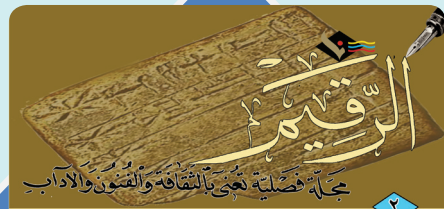 الرَّقِيمْ
مَجَلَّة فَصْلِيَّة تُعْنَى بِالثَّقَافَة وَالْفُنُونْ وَالآدَابِ
٢